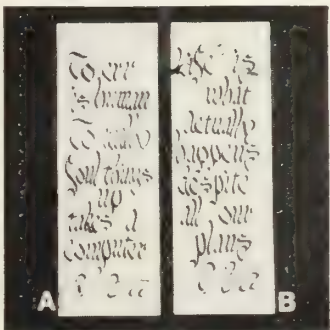 To err
is human
To
foul things
up
takes a
computer
Life is
what
actually
happens
despite
all our
plans
A
B